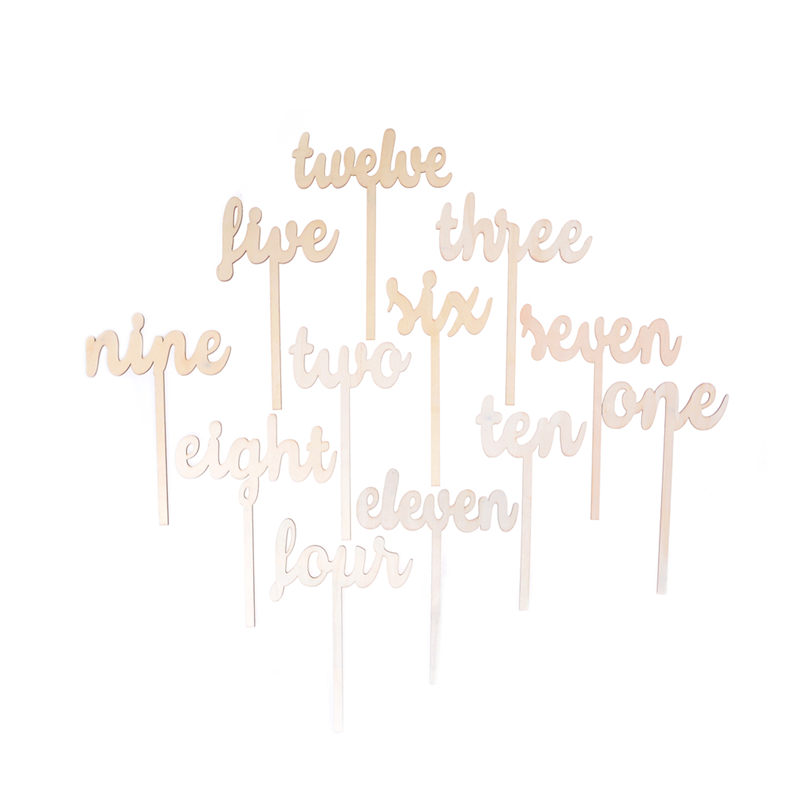 twelve
five
three
six
nine
two
seven
one
eight
ten
eleven
four